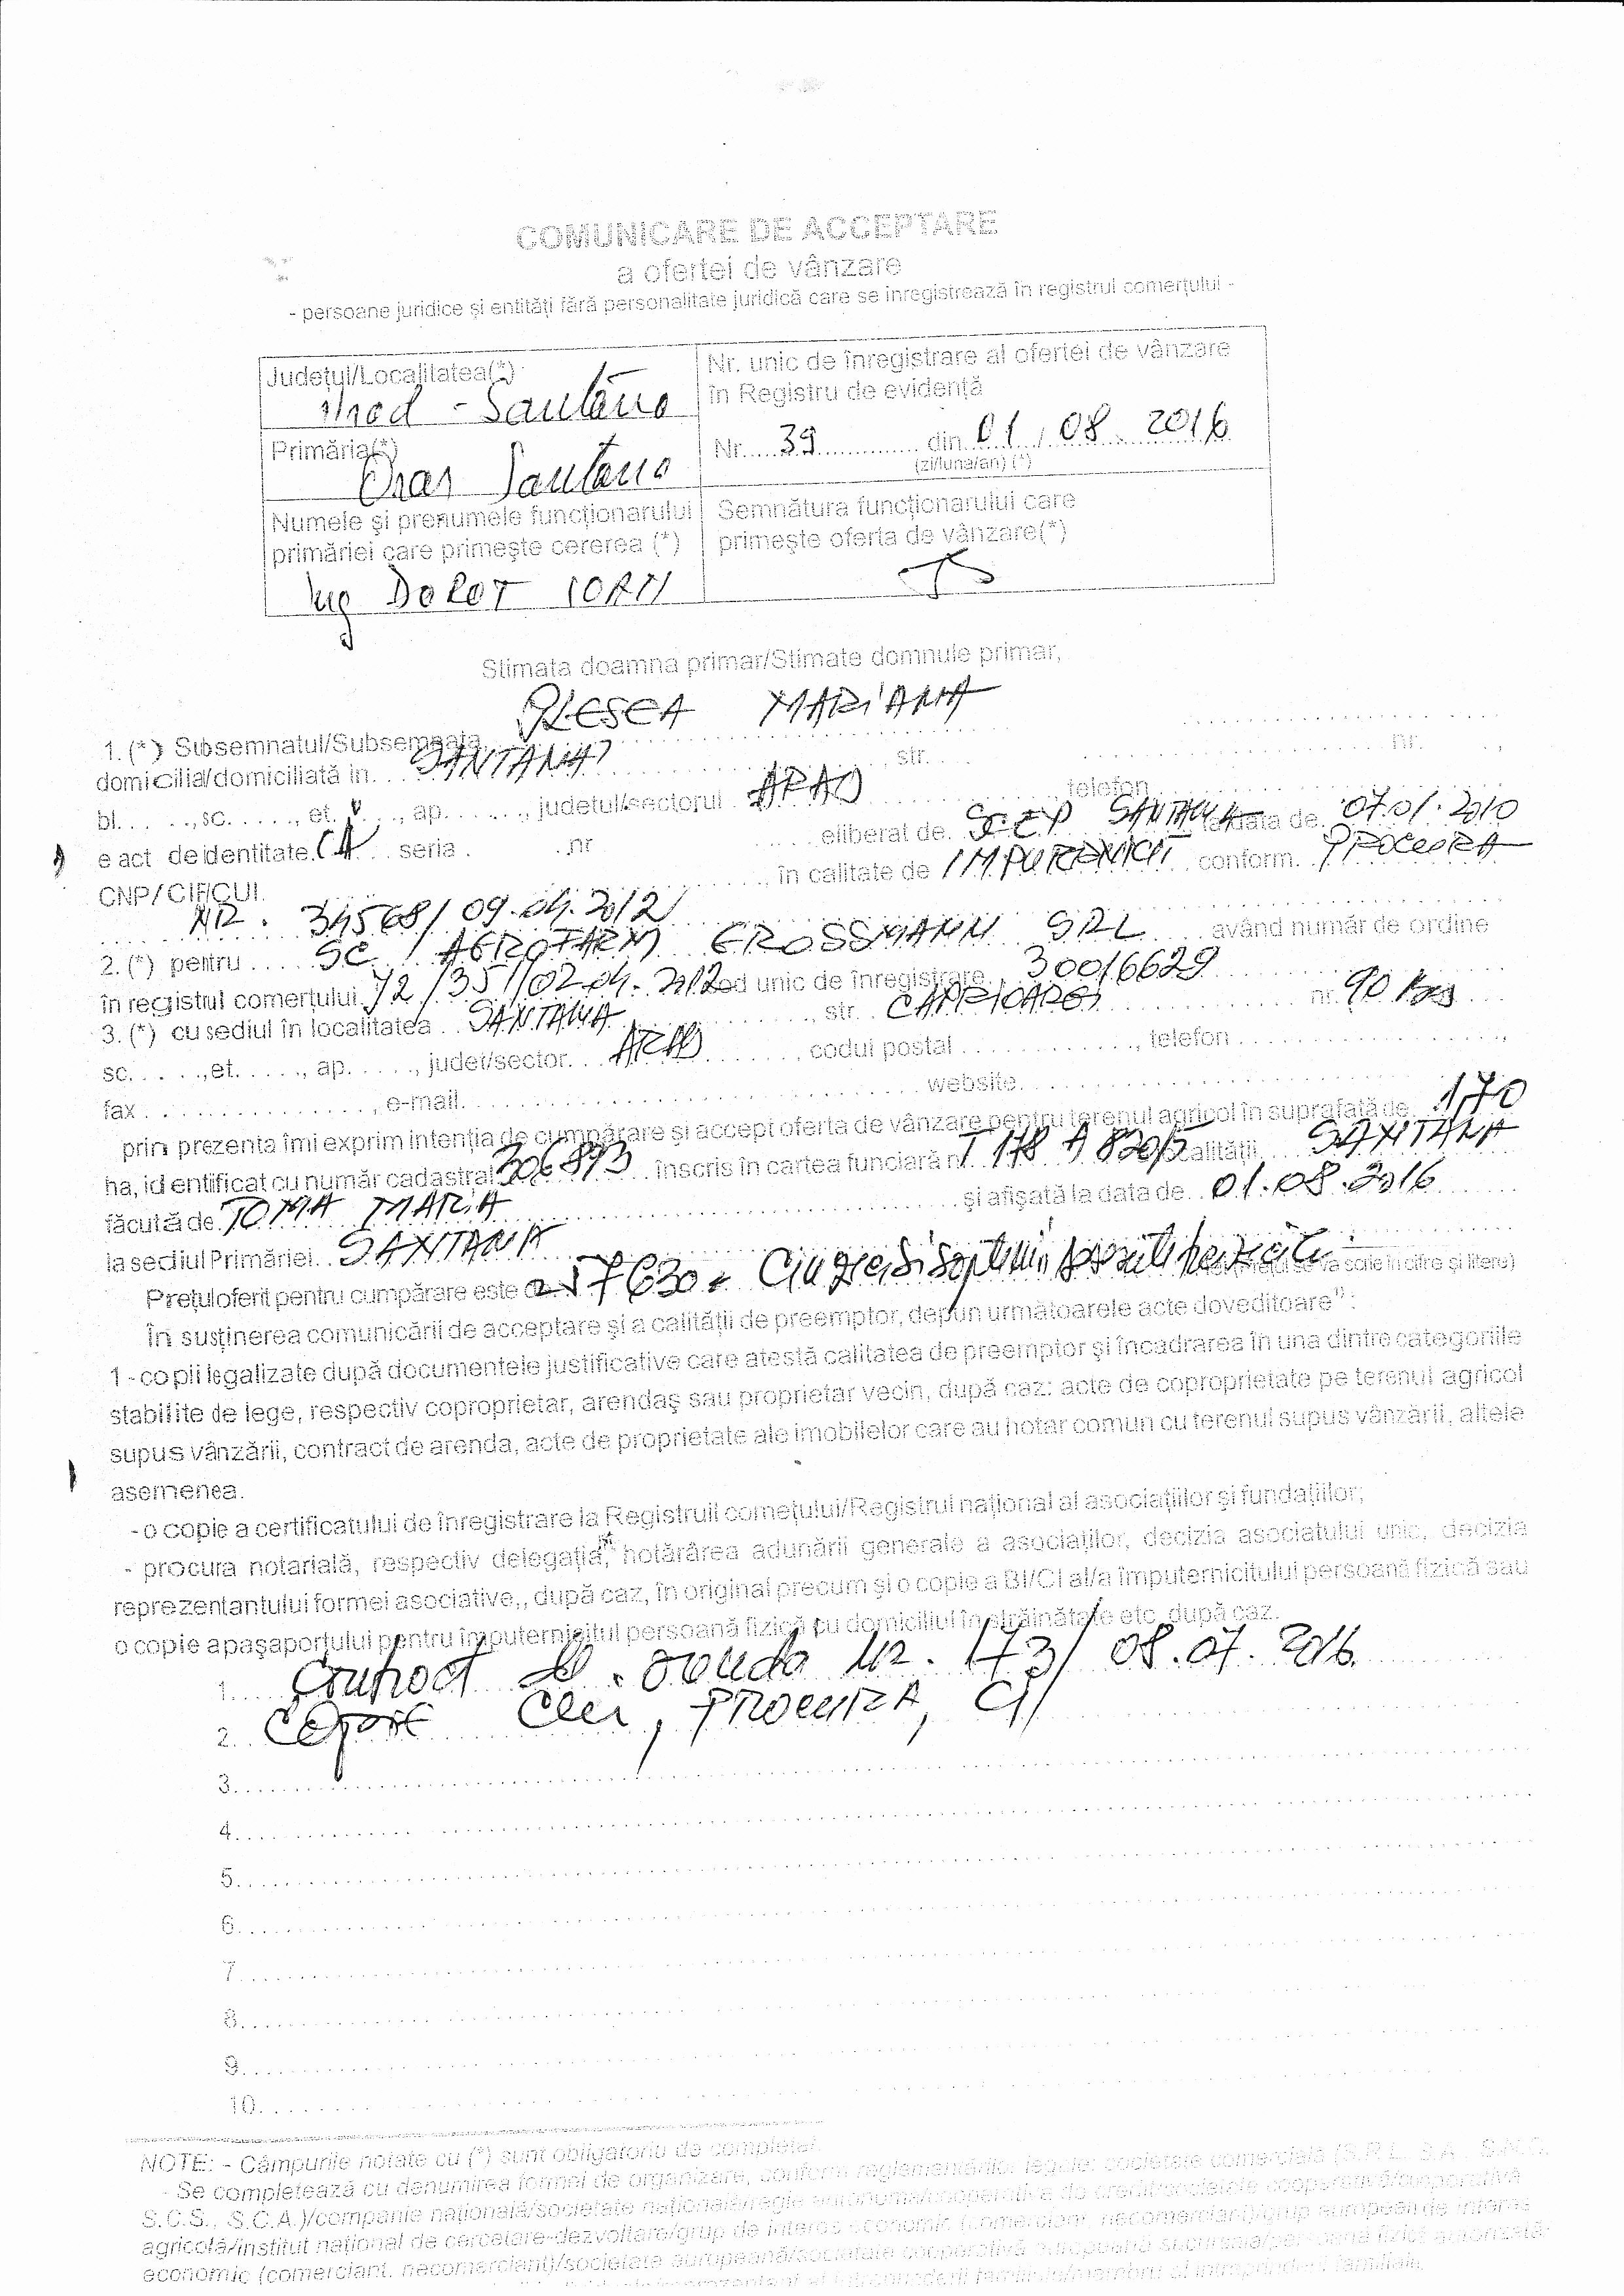 COMUNICARE DE ACCEPTARE
a ofertei de vânzare
- persoane juridice și entități fără personalitate juridică care se inregistrează în registrul comerțului -
Județul/Localitatea(*)
Arad - Santana
Nr. unic de înregistrare al ofertei de vânzare
în Registru de evidență
Nr. 39 din 01 / 08. 2016
(zi/luna/an) (*)
Primăria(*)
Oras Santana
Numele și prenumele funcționarului
primăriei care primește cererea (*)
Ing DOROT IOAN
Semnătura funcționarului care
primește oferta de vânzare(*)
Stimata doamna primar/Stimate domnule primar,
1. (*) Subsemnatul/Subsemnata PLESEA MARIANA
domicilia/domiciliată in SANTANA, str. nr. ,
bl. , sc. , et. , ap. , judetul/sectorul ARAD, telefon
e act de identitate CI seria nr eliberat de SANTANA la data de 07.01.2010
CNP/CIF/CUI , în calitate de IMPUTERNICIT conform PROCURA
NR. 34568/09.04.2012
2. (*) pentru SC AGROFARM GROSSMANN SRL având număr de ordine
în registrul comerțului J2/351/02.04.2012 cod unic de înregistrare 30016629
3. (*) cu sediul în localitatea SANTANA, str. nr. 90
sc. , et. , ap. , judet/sector ARAD, codul postal , telefon ,
fax , e-mail website
prin prezenta îmi exprim intenția de cumpărare și accept oferta de vânzare pentru terenul agricol în suprafată de 1,70
ha, identificat cu număr cadastral 306893 înscris în cartea funciară nr. T 178 A 820/5 localității SANTANA
făcută de TOMA MARIA și afișată la data de 01.08.2016
la sediul Primăriei SANTANA
Prețul oferit pentru cumpărare este de 57630 (Prețul se va scie în cifre și litere)
În susținerea comunicării de acceptare și a calității de preemptor, depun următoarele acte doveditoare¹⁾:
1 - copii legalizate după documentele justificative care atestă calitatea de preemptor și încadrarea în una dintre categoriile
stabilite de lege, respectiv coproprietar, arendaș sau proprietar vecin, după caz: acte de coproprietate pe terenul agricol
supus vânzării, contract de arenda, acte de proprietate ale imobilelor care au hotar comun cu terenul supus vânzării, altele
asemenea.
- o copie a certificatului de înregistrare la Registruil comețului/Registrul național al asociațiilor și fundațiilor;
- procura notarială, respectiv delegația, hotărârea adunării generale a asociaților, decizia asociatului unic, decizia
reprezentantului formei asociative,, după caz, în original precum și o copie a BI/CI al/a împuternicitului persoană fizică sau
o copie a pașaportului pentru împuternicitul persoană fizică cu domiciliul în străinătate etc, după caz.
1. Contract de arenda nr. 173/ 08.07.2016.
2. Copie CUI, PROCURA, CI
3.
4.
5.
6.
7.
8.
9.
10.
NOTE: - Câmpurile notate cu (*) sunt obligatoriu de completat.
- Se completează cu denumirea formei de organizare, conform reglementărilor legale: societate comercială (S.R.L., S.A., S.N.C.
S.C.S., S.C.A.)/companie națională/societate națională/regie autonomă/cooperativa de credit/societate cooperativă/cooperativă
agricolă/institut național de cercetare-dezvoltare/grup de interes economic
economic (comerciant, necomerciant)/societate europeană/societate cooperativă europeană